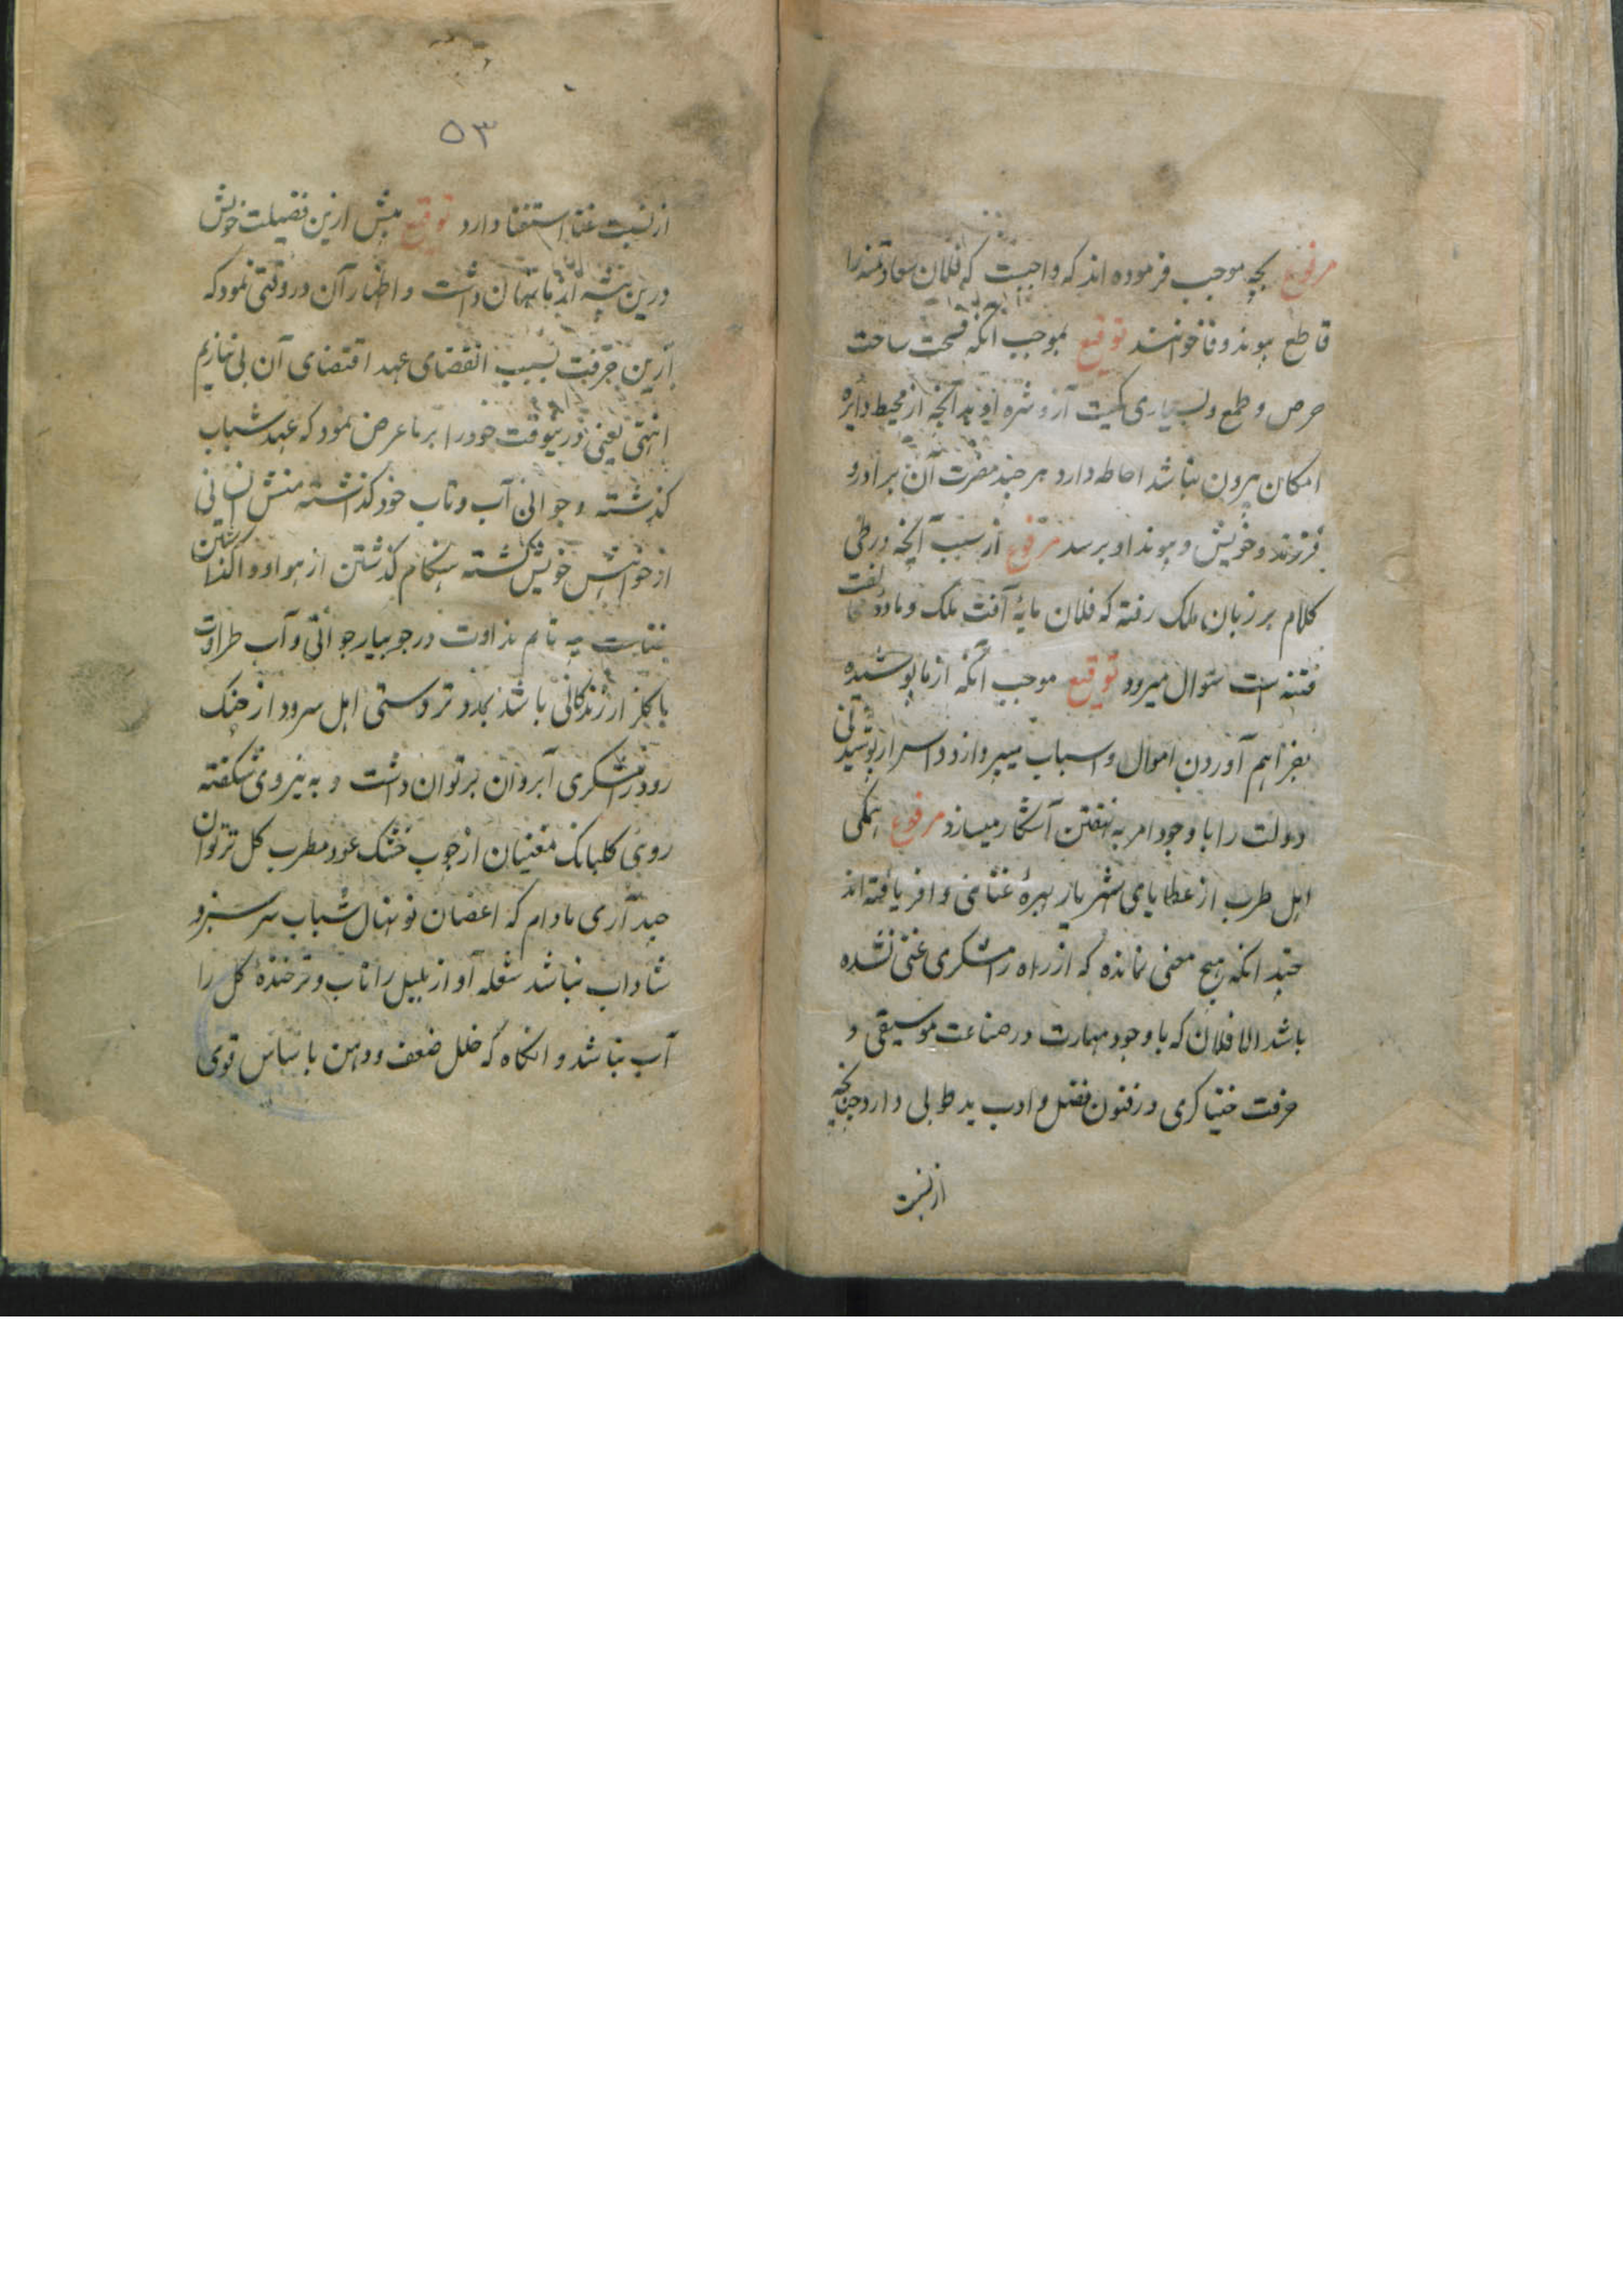 مرفوع بچه موجب فرموده اند که واجبست که فلان سعادتمند را
قاطع پیوند وفا خوانند توقیع بموجب آنکه فسحت ساحت
حرص و طمع و بسیاری کمیت آز و شره او بدانچه از محیط دایره
امکان بیرون نباشد احاطه دارد هر چند مضرت آن برادر و
فرزند و خویش و پیوند او برسد مرفوع از سبب آنچه در طی
کلام بر زبان ملک رفته که فلان مایهٔ آفت ملک و ماده
فتنه است سؤال میرود توقیع موجب آنکه از ما پوشیده
بفراهم آوردن اموال و اسباب میپردازد و اسرار پوشیدنی
دولت را با وجود امر به نهفتن آشکار میسازد مرفوع همکی
اهل طرب از عطایای شهریار بهرهٔ غنا وافر یافته اند
چندانکه هیچ مغنی نمانده که از راه رامشکری غنی نشده
باشد الا فلان که با وجود مهارت در صناعت موسیقی و
حرفت خنیاکری در فنون فضل و ادب ید طولی دارد چنانچه
از نسبت
۵۳
از نسبت غنا استغنا دارد توقیع پیش ازین فضیلت خویش
درین پیشه از ما نهان داشت و اظهار آن در وقتی نمود که
ازین حرفت بسبب انقضای عهد اقتضای آن بی نیازیم
انتهی یعنی درینوقت خود را بر ما عرض نمود که عهد شباب
کذشته و جوانی آب و تاب خود کذاشته منش نسانی
از خواهش خویش کشته هنکام کذشتن از هوا و واکذاشتن
نداوت در جویبار جوانی و آب طراوت
با کلزار زندکانی باشد تردستی اهل سرود از خنک
رود رامشکری آبروان بر توان داشت و به نیروی شکفته
روئی کلبانک مغنیان از چوب خشک عود مطرب کل تر توان
چید آری مادام که اغصان نونهال شباب سرسبز و
شاداب نباشد شعله آواز بلبل را تاب و تر خندهٔ کل را
آب نباشد و انکاه که خلل ضعف و وهن باساس قوی